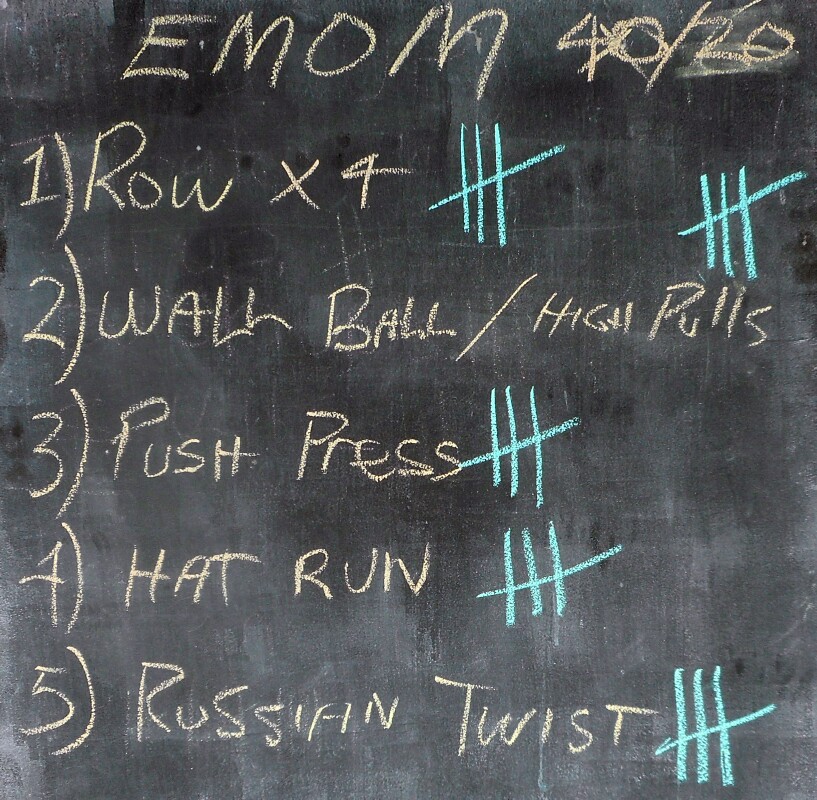 EMOM 40/20
1) ROW x 4
2) WALL BALL / HIGH Pulls
3) PUSH Press
4) HAT RUN
5) RUSSIAN TWIST